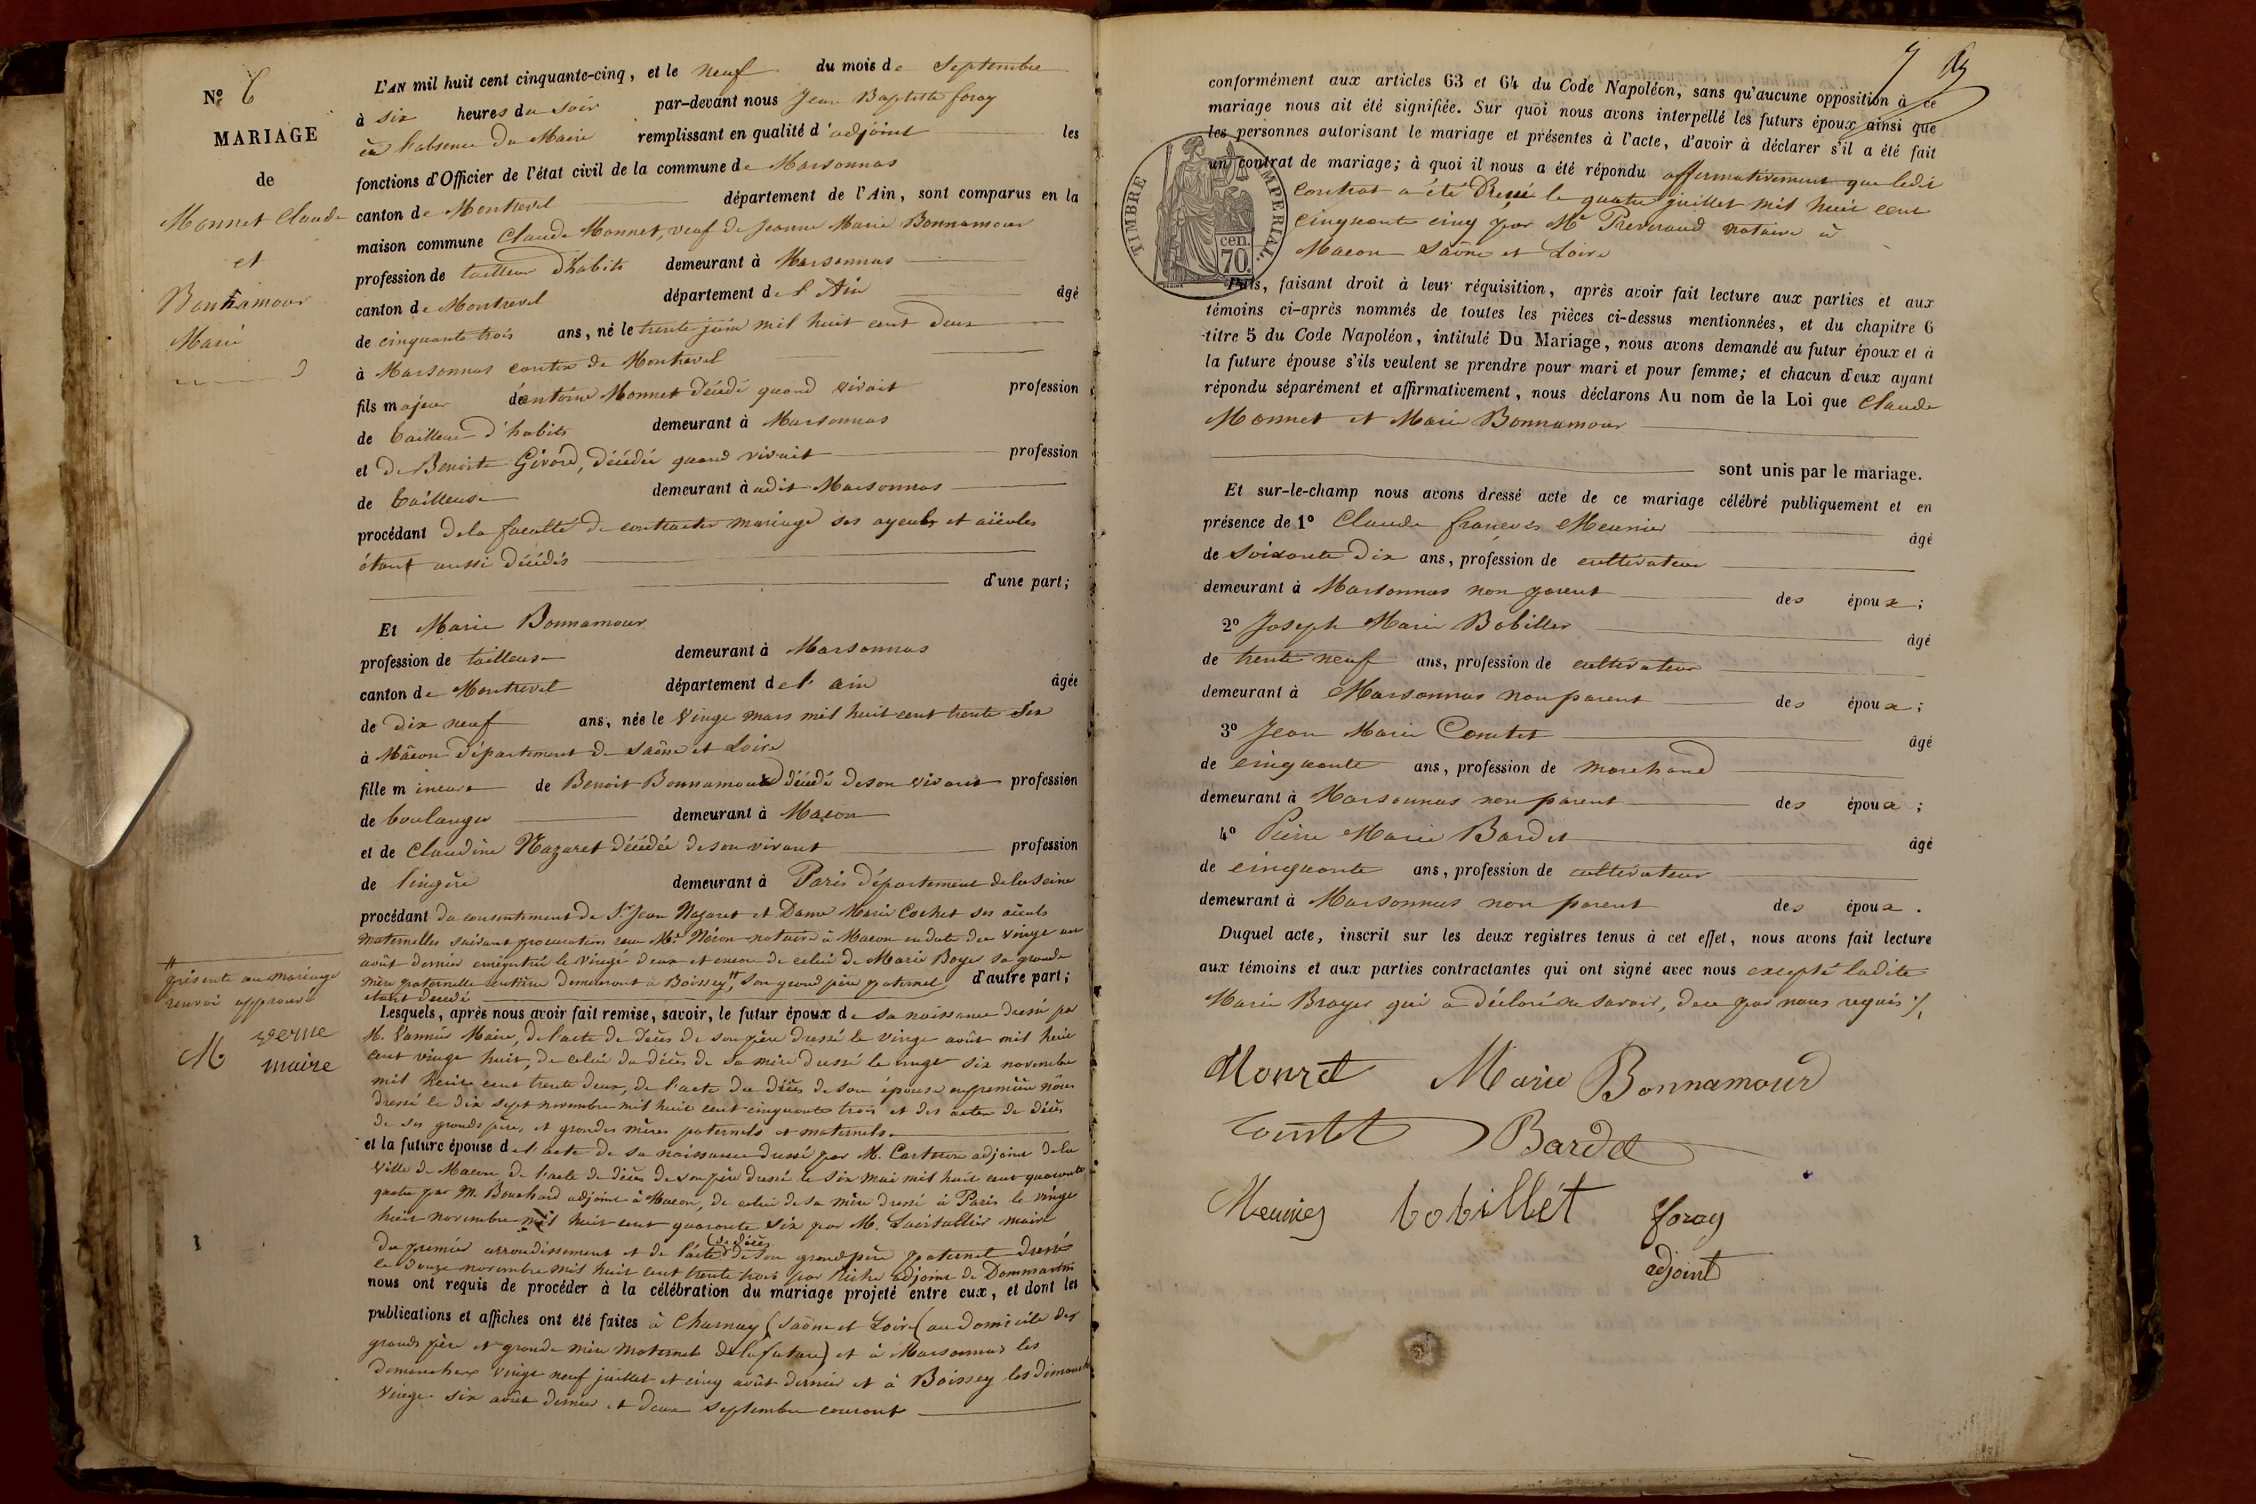 N.º 6
MARIAGE
de
Monnet Claude
et
Bonnamour
Marie
L'AN mil huit cent cinquante-cinq, et le neuf du mois de Septembre
à six heures du soir par-devant nous Jean Baptiste foray
en l'absence du Maire remplissant en qualité d'adjoint les
fonctions d'Officier de l'état civil de la commune de Marsonnas
canton de Montrevel département de l'Ain, sont comparus en la
maison commune Claude Monnet, veuf de Jeanne Marie Bonnamour
profession de tailleur d'habits demeurant à Marsonnas
canton de Montrevel département de l'Ain âgé
de cinquante trois ans, né le trente juin mil huit cent deux
à Marsonnas canton de Montrevel
fils majeur d'antoine Monnet décédé quand vivait profession
de tailleur d'habits demeurant à Marsonnas
et de Benoite Girord, décédée quand vivait profession
de tailleuse demeurant à audit Marsonnas
procédant de la faculté de contracter mariage ses ayeuls et aïeules
étant aussi décédés
d'une part;
Et Marie Bonnamour
profession de tailleuse demeurant à Marsonnas
canton de Montrevel département de l'ain âgée
de dix neuf ans, née le vingt mars mil huit cent trente six
à Mâcon département de Saône et Loire
fille mineure de Benoit Bonnamour décédé de son vivant profession
de boulanger demeurant à Macon
et de Claudine Nazaret décédée de son vivant profession
de lingère demeurant à Paris département de la Seine
procédant du consentement de Sr Jean Nazaret et Dame Marie Cochet ses aïeuls
maternelles suivant procuration reçue Me Néron notaire à Macon en date du vingt un
août dernier enregistrée le vingt deux et encore de celui de Marie Boyer sa grande
mère paternelle rentière demeurant à Boissey # son grand père paternel d'autre part;
étant décédé
# présente au mariage
renvoi approuvé
M verne
maire
Lesquels, après nous avoir fait remise, savoir, le futur époux de sa naissance dressé par
M. Vannier Maire, de l'acte de décès de son père dressé le vingt août mil huit
cent vingt huit, de celui du décès de sa mère dressé le vingt six novembre
mil huit cent trente deux, de l'acte du décès de son épouse en première nôces
dressé le dix sept novembre mil huit cent cinquante trois et des actes de décès
de ses grands pères, et grandes mères paternels et maternels.
et la future épouse de l'acte de sa naissance dressé par M. adjoint de la
Ville de Macon de l'acte de décès de son père dressé le six mai mil huit cent quarante
quatre par M. Bouchard adjoint à Macon, de celui de sa mère dressé à Paris le vingt
huit novembre mil huit cent quarante six par M. maire
du premier arrondissement et de l'acte (de décès de son grand père paternel dressé
le douze novembre mil huit cent trente trois par adjoint de Dommartin
nous ont requis de procéder à la célébration du mariage projeté entre eux, et dont les
publications et affiches ont été faites à Charnay (Saône et Loire (au domicile des
grands père et grande mère maternels de la future) et à Marsonnas les
dimanches vingt neuf juillet et cinq août dernier et à Boissey les dimanches
vingt six août dernier et deux septembre courant
7
conformément aux articles 63 et 64 du Code Napoléon, sans qu'aucune opposition à ce
mariage nous ait été signifiée. Sur quoi nous avons interpellé les futurs époux ainsi que
les personnes autorisant le mariage et présentes à l'acte, d'avoir à déclarer s'il a été fait
un contrat de mariage; à quoi il nous a été répondu affirmativement que ledit
contrat a été dressé le quatre juillet mil huit cent
cinquante cinq par Me Preveraud notaire à
Macon Saône et Loire
TIMBRE IMPERIAL
70 cen.
Puis, faisant droit à leur réquisition, après avoir fait lecture aux parties et aux
témoins ci-après nommés de toutes les pièces ci-dessus mentionnées, et du chapitre 6
titre 5 du Code Napoléon, intitulé Du Mariage, nous avons demandé au futur époux et à
la future épouse s'ils veulent se prendre pour mari et pour femme; et chacun d'eux ayant
répondu séparément et affirmativement, nous déclarons Au nom de la Loi que Claude
Monnet et Marie Bonnamour
sont unis par le mariage.
Et sur-le-champ nous avons dressé acte de ce mariage célébré publiquement et en
présence de 1º Claude françois Meunier âgé
de soixante dix ans, profession de cultivateur
demeurant à Marsonnas non parent des époux;
2º Joseph Marie Bobillet âgé
de trente neuf ans, profession de cultivateur
demeurant à Marsonnas non parent des époux;
3º Jean Marie Comtet âgé
de cinquante ans, profession de marchand
demeurant à Marsonnas non parent des époux;
4º Pierre Marie Bardet âgé
de cinquante ans, profession de cultivateur
demeurant à Marsonnas non parent des époux.
Duquel acte, inscrit sur les deux registres tenus à cet effet, nous avons fait lecture
aux témoins et aux parties contractantes qui ont signé avec nous excepté ladite
Marie Broyer qui a déclaré ne savoir, de ce par nous requis
Monnet Marie Bonnamour
Comtet Bardet
Meunier bobillet foray
adjoint